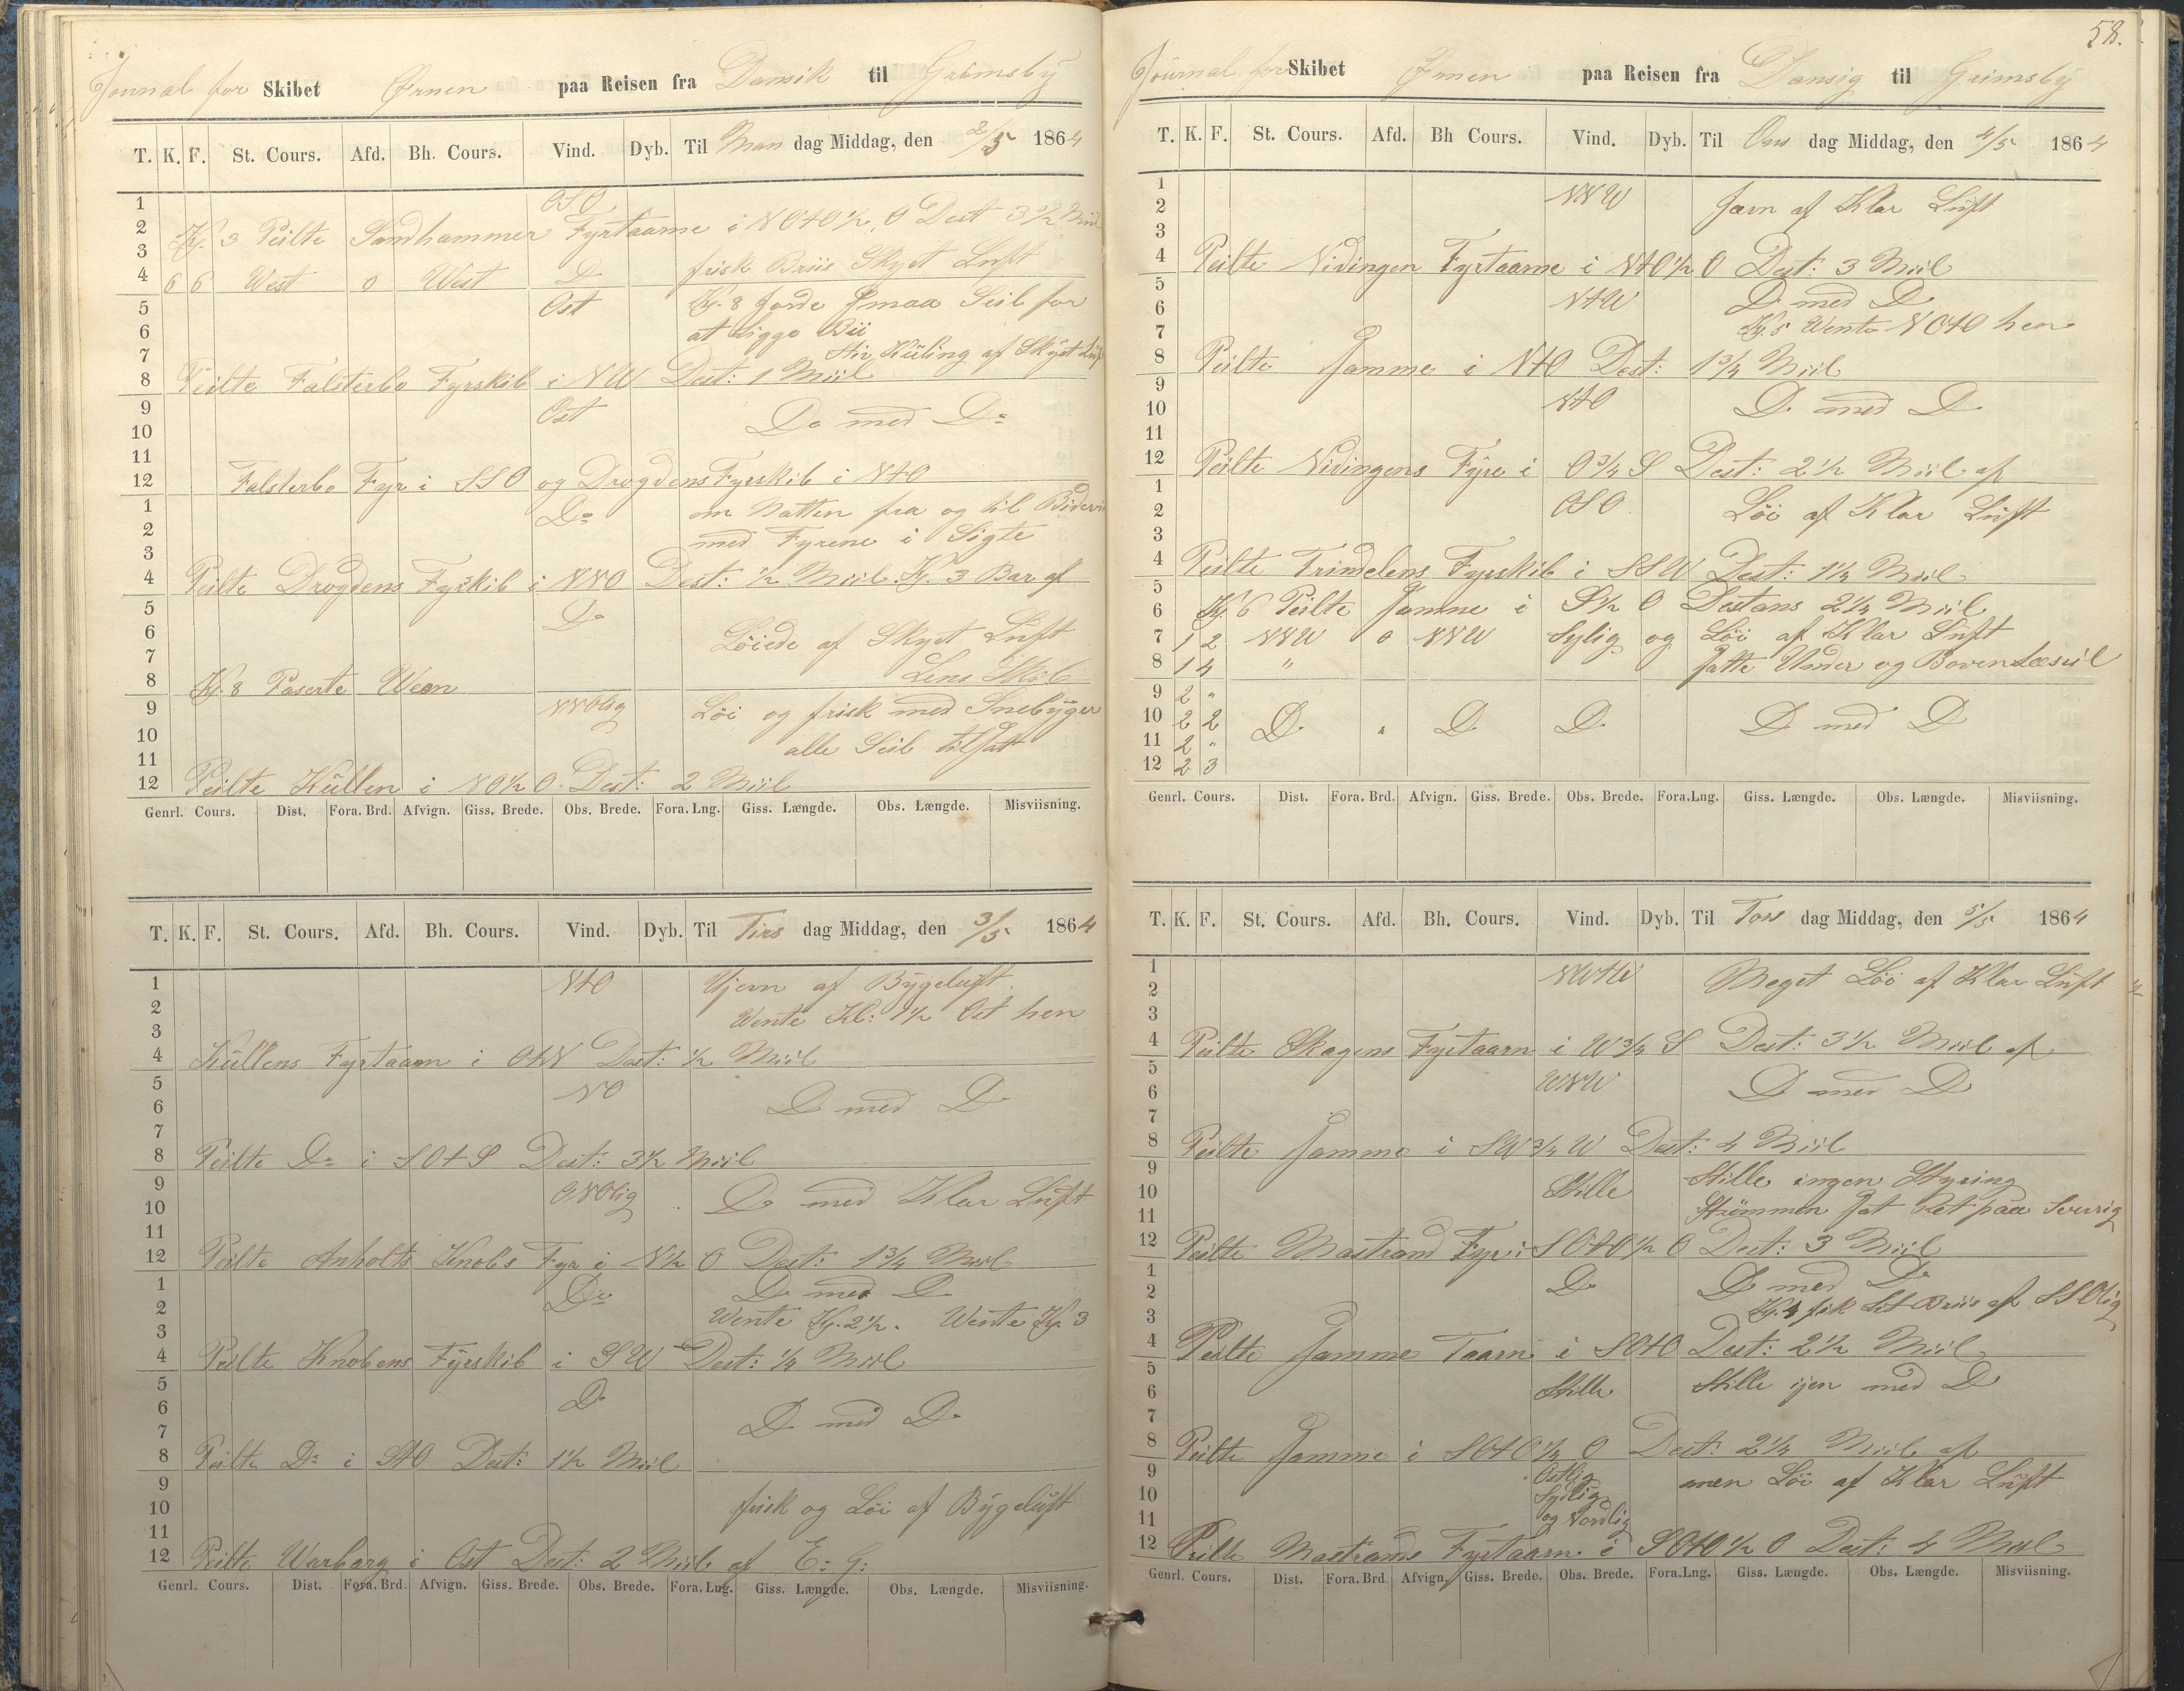 Journal for Skibet Ørnen paa Reisen fra Dansik til Grimsby
T. K. F. St. Cours. Afd. Bh. Cours. Vind. Dyb. Til Man dag Middag, den 2/5 1864
1 OSO
2 Kl. 3 Peilte Sandhammer Fyrtaarne i NOtO 1/2 O Dest 3 1/2 Miil
3 frisk Briis Skyet Luft
4 6 6 West 0 West D
5 Ost Kl. 8 Jorde Smaa Seil for
6 at Ligge Bii
7 Stiv Kuling af Skyet Luft
8 Peilte Falsterbo Fyrskib i NW Dest: 1 Miil
9 Ost Do med Do
10
11
12 Falsterbo Fyr i SSO og Drogdens Fyrskib i NtO
1 Do om Natten fra og til
2 med Fyrene i Sigte
3
4 Peilte Drogdens Fyrskib i NNO Dest: 1/2 Miil. Kl. 3 Bar af
5 Do
6 Löiede af Skyet Luft
7 Lens Skib
8 Kl. 8 Paserte Ween
9 NNOlig Löi og frisk med Snebyger
10 alle Seil tilsatt
11
12 Peilte Küllen i NO 1/2 O. Dest: 2 Miil
Genrl. Cours. Dist. Fora. Brd. Afvign. Giss. Brede. Obs. Brede. Fora. Lng. Giss. Længde. Obs. Længde. Misviisning.
T. K. F. St. Cours. Afd. Bh. Cours. Vind. Dyb. Til Tirs dag Middag, den 3/5 1864
1 NtO Ujevn af Bygeluft.
2 Wente Kl: 1 1/2 Ost hen
3
4 Küllens Fyrtaarn i OtN Dest: 1/2 Miil
5 NO
6 D med D
7
8 Peilte Do i SOtS Dest: 3 1/2 Miil
9 ONOlig Do med Klar Luft
10
11
12 Peilte Anholts Knobs Fyr i N 1/2 O Dest: 1 3/4 Miil
1 Do D med D
2 Wente Kl. 2 1/2. Wente Kl. 3
3
4 Peilte Knobens Fyrskib i SW Dest: 1/4 Miil
5 Do
6 D med Do
7
8 Peilte Do i StO Dest: 1 1/2 Miil
9
10 frisk og Löi af Bygeluft
11
12 Peilte Warbarg i Ost Dest: 2 Miil af E: G:
Genrl. Cours. Dist. Fora. Brd. Afvign. Giss. Brede. Obs. Brede. Fora. Lng. Giss. Længde. Obs. Længde. Misviisning.
58.
Journal for Skibet Ørnen paa Reisen fra Dansig til Grimsby
T. K. F. St. Cours. Afd. Bh Cours. Vind. Dyb. Til Ons dag Middag, den 4/5 1864
1 NNW Jævn af Klar Luft
2
3
4 Peilte Nidingen Fyrtaarne i NtO 1/2 O Dest: 3 Miil
5 NtW D med D
6 Kl. 5 Wente NOtO hen
7
8 Peilte Samme i NtO Dest: 1 3/4 Miil
9 NtO D med D
10
11
12 Peilte Nidingens Fyre i O 3/4 S Dest: 2 1/2 Miil af
1 OSO Löi af Klar Luft
2
3
4 Peilte Trindelens Fyrskib i SSW Dest: 1 1/4 Miil
5
6 Kl. 6 Peilte Samme i S 1/2 O Destans 2 1/4 Miil
7 1 2 NNW 0 NNW Sylig og Löi af Klar Luft
8 1 4 " Satte Under og Bovenlæseil
9 2 "
10 2 2 D " D D D med D
11 2 "
12 2 3
Genrl. Cours. Dist. Fora. Brd. Afvign. Giss. Brede. Obs. Brede. Fora. Lng. Giss. Længde. Obs. Længde. Misviisning.
T. K. F. St. Cours. Afd. Bh. Cours. Vind. Dyb. Til Tors dag Middag, den 5/5 1864
1 NWtW Meget Löi af Klar Luft
2
3
4 Peilte Skagens Fyrtaarn i W 3/4 S Dest: 3 1/2 Miil af
5 WNW D med D
6
7
8 Peilte Samme i SW 3/4 W Dest: 4 Miil
9 Stille Stille ingen Styring
10 Strömmen Sat Ret paa Sverrig
11
12 Peilte Mastrand Fyr i SOtO 1/2 O Dest: 3 Miil
1 Do D med Do
2 Kl. 4 fik Let Briis af SSOlig
3
4 Peilte Samme Taarn i SOtO Dest: 2 1/2 Miil
5 Stille Stille ijen med D
6
7
8 Peilte Samme i SOtO 1/4 O Dest: 2 1/4 Miil af
9 Ostlig men Löi af Klar Luft
10 Sydlig
11 og Nordlig
12 Peilte Mastrands Fyrtaarn i SOtO 1/2 O Dest: 4 Miil
Genrl. Cours. Dist. Fora. Brd. Afvign. Giss. Brede. Obs. Brede. Fora. Lng. Giss. Længde. Obs. Længde. Misviisning.